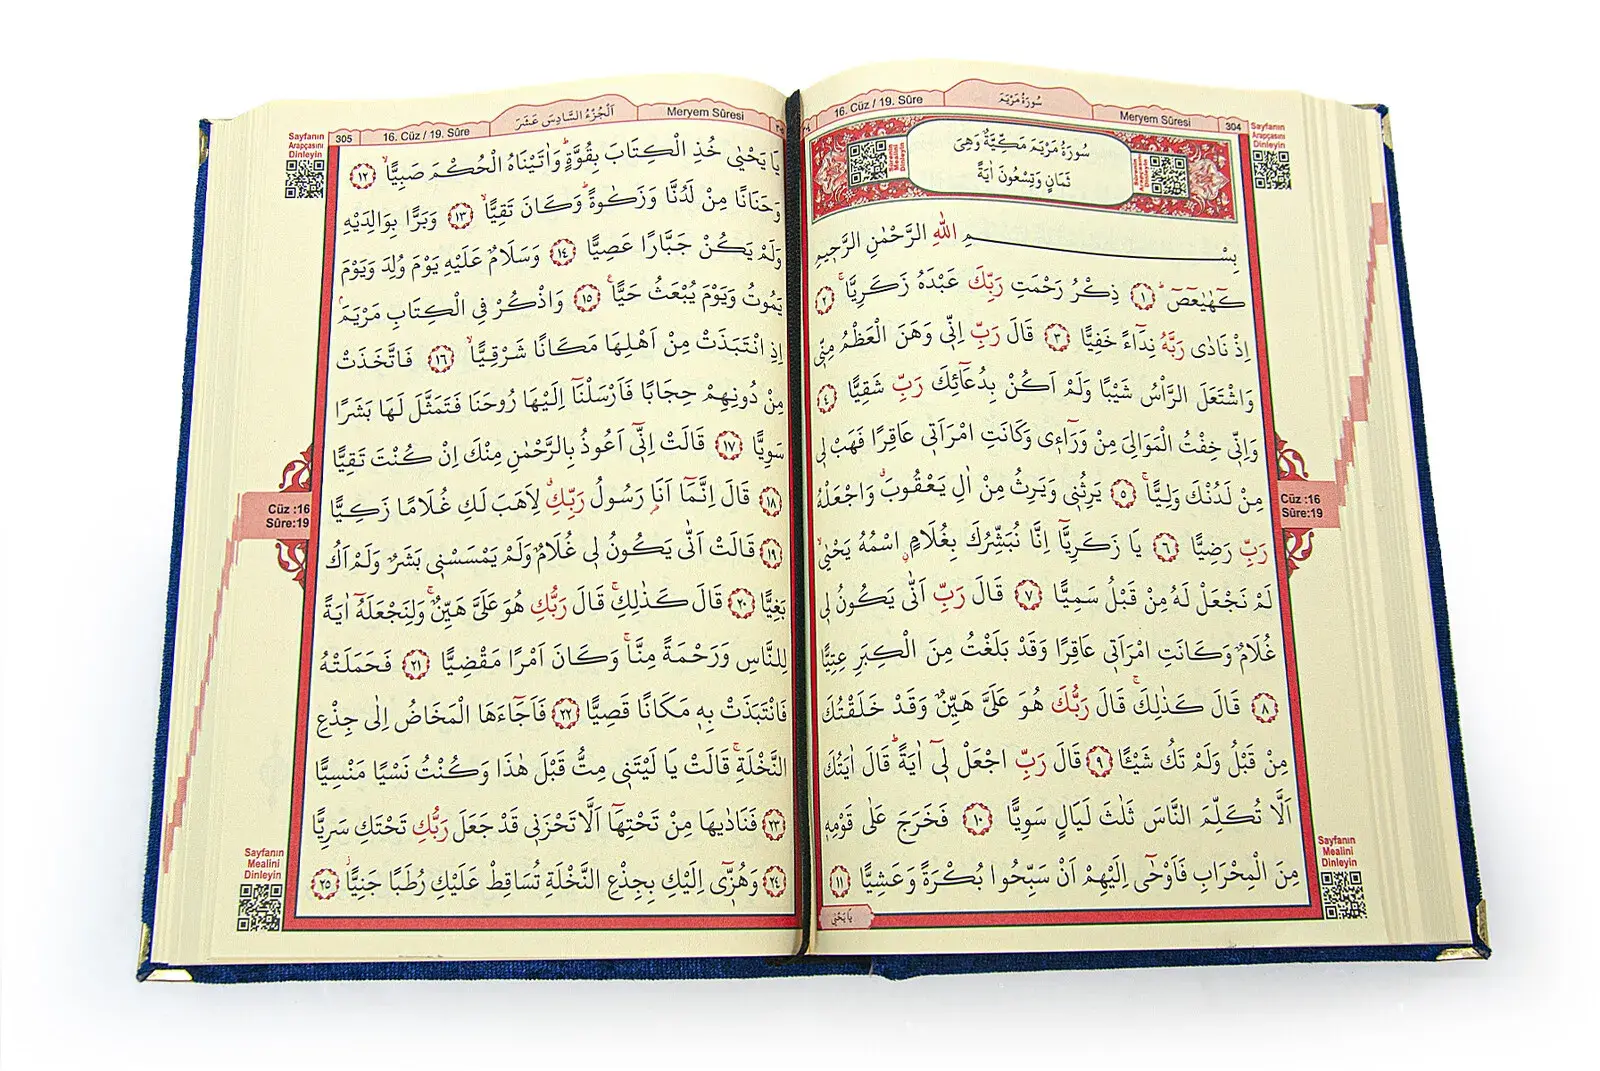 16. Cüz / 19. Sûre
سُورَةُ مَرْيَمَ
Meryem Sûresi
304
Sayfanın
Arapçasını
Dinleyin
سُورَةُ مَرْيَمَ مَكِّيَّةٌ وَهِىَ
ثَمَانٍ وَتِسْعُونَ اٰيَةً
بِسْمِ اللّٰهِ الرَّحْمٰنِ الرَّحٖيمِ
كٓهٰيٰعٓصٓ ۜ ﴿١﴾ ذِكْرُ رَحْمَتِ رَبِّكَ عَبْدَهُ زَكَرِيَّا ۚ ﴿٢﴾
اِذْ نَادٰى رَبَّهُ نِدَٓاءً خَفِيًّا ﴿٣﴾ قَالَ رَبِّ اِنّٖى وَهَنَ الْعَظْمُ مِنّٖى
وَاشْتَعَلَ الرَّاْسُ شَيْبًا وَلَمْ اَكُنْ بِدُعَٓائِكَ رَبِّ شَقِيًّا ﴿٤﴾
وَاِنّٖى خِفْتُ الْمَوَالِىَ مِنْ وَرَٓاءٖى وَكَانَتِ امْرَاَتٖى عَاقِرًا فَهَبْ لٖى
مِنْ لَدُنْكَ وَلِيًّا ۙ ﴿٥﴾ يَرِثُنٖى وَيَرِثُ مِنْ اٰلِ يَعْقُوبَ ۗ وَاجْعَلْهُ
رَبِّ رَضِيًّا ﴿٦﴾ يَا زَكَرِيَّٓا اِنَّا نُبَشِّرُكَ بِغُلَامٍ اسْمُهُ يَحْيٰى ۙ
لَمْ نَجْعَلْ لَهُ مِنْ قَبْلُ سَمِيًّا ﴿٧﴾ قَالَ رَبِّ اَنّٰى يَكُونُ لٖى
غُلَامٌ وَكَانَتِ امْرَاَتٖى عَاقِرًا وَقَدْ بَلَغْتُ مِنَ الْكِبَرِ عِتِيًّا
﴿٨﴾ قَالَ كَذٰلِكَ ۚ قَالَ رَبُّكَ هُوَ عَلَىَّ هَيِّنٌ وَقَدْ خَلَقْتُكَ
مِنْ قَبْلُ وَلَمْ تَكُ شَيْـًٔا ﴿٩﴾ قَالَ رَبِّ اجْعَلْ لٖٓى اٰيَةً ۜ قَالَ اٰيَتُكَ
اَلَّا تُكَلِّمَ النَّاسَ ثَلٰثَ لَيَالٍ سَوِيًّا ﴿١٠﴾ فَخَرَجَ عَلٰى قَوْمِهٖ
مِنَ الْمِحْرَابِ فَاَوْحٰٓى اِلَيْهِمْ اَنْ سَبِّحُوا بُكْرَةً وَعَشِيًّا ﴿١١﴾
يَا يَحْيٰى
Cüz :16
Sûre:19
Sayfanın
Mealini
Dinleyin
Sayfanın
Arapçasını
Dinleyin
305
16. Cüz / 19. Sûre
اَلْجُزْءُ السَّادِسَ عَشَرَ
Meryem Sûresi
يَا يَحْيٰى خُذِ الْكِتَابَ بِقُوَّةٍ ۜ وَاٰتَيْنَاهُ الْحُكْمَ صَبِيًّا ۙ ﴿١٢﴾
وَحَنَانًا مِنْ لَدُنَّا وَزَكٰوةً ۜ وَكَانَ تَقِيًّا ۙ ﴿١٣﴾ وَبَرًّا بِوَالِدَيْهِ
وَلَمْ يَكُنْ جَبَّارًا عَصِيًّا ﴿١٤﴾ وَسَلَامٌ عَلَيْهِ يَوْمَ وُلِدَ وَيَوْمَ
يَمُوتُ وَيَوْمَ يُبْعَثُ حَيًّا ۟ ﴿١٥﴾ وَاذْكُرْ فِى الْكِتَابِ مَرْيَمَ ۢ
اِذِ انْتَبَذَتْ مِنْ اَهْلِهَا مَكَانًا شَرْقِيًّا ۙ ﴿١٦﴾ فَاتَّخَذَتْ
مِنْ دُونِهِمْ حِجَابًا فَاَرْسَلْنَٓا اِلَيْهَا رُوحَنَا فَتَمَثَّلَ لَهَا بَشَرًا
سَوِيًّا ﴿١٧﴾ قَالَتْ اِنّٖٓى اَعُوذُ بِالرَّحْمٰنِ مِنْكَ اِنْ كُنْتَ تَقِيًّا
﴿١٨﴾ قَالَ اِنَّمَٓا اَنَا رَسُولُ رَبِّكِ ۗ لِاَهَبَ لَكِ غُلَامًا زَكِيًّا
﴿١٩﴾ قَالَتْ اَنّٰى يَكُونُ لٖى غُلَامٌ وَلَمْ يَمْسَسْنٖى بَشَرٌ وَلَمْ اَكُ
بَغِيًّا ﴿٢٠﴾ قَالَ كَذٰلِكِ ۚ قَالَ رَبُّكِ هُوَ عَلَىَّ هَيِّنٌ ۚ وَلِنَجْعَلَهُٓ اٰيَةً
لِلنَّاسِ وَرَحْمَةً مِنَّا ۚ وَكَانَ اَمْرًا مَقْضِيًّا ﴿٢١﴾ فَحَمَلَتْهُ
فَانْتَبَذَتْ بِهٖ مَكَانًا قَصِيًّا ﴿٢٢﴾ فَاَجَٓاءَهَا الْمَخَاضُ اِلٰى جِذْعِ
النَّخْلَةِ ۚ قَالَتْ يَا لَيْتَنٖى مِتُّ قَبْلَ هٰذَا وَكُنْتُ نَسْيًا مَنْسِيًّا
﴿٢٣﴾ فَنَادٰيهَا مِنْ تَحْتِهَٓا اَلَّا تَحْزَنٖى قَدْ جَعَلَ رَبُّكِ تَحْتَكِ سَرِيًّا
﴿٢٤﴾ وَهُزّٖٓى اِلَيْكِ بِجِذْعِ النَّخْلَةِ تُسَاقِطْ عَلَيْكِ رُطَبًا جَنِيًّا ۘ ﴿٢٥﴾
Cüz :16
Sûre:19
Sayfanın
Mealini
Dinleyin